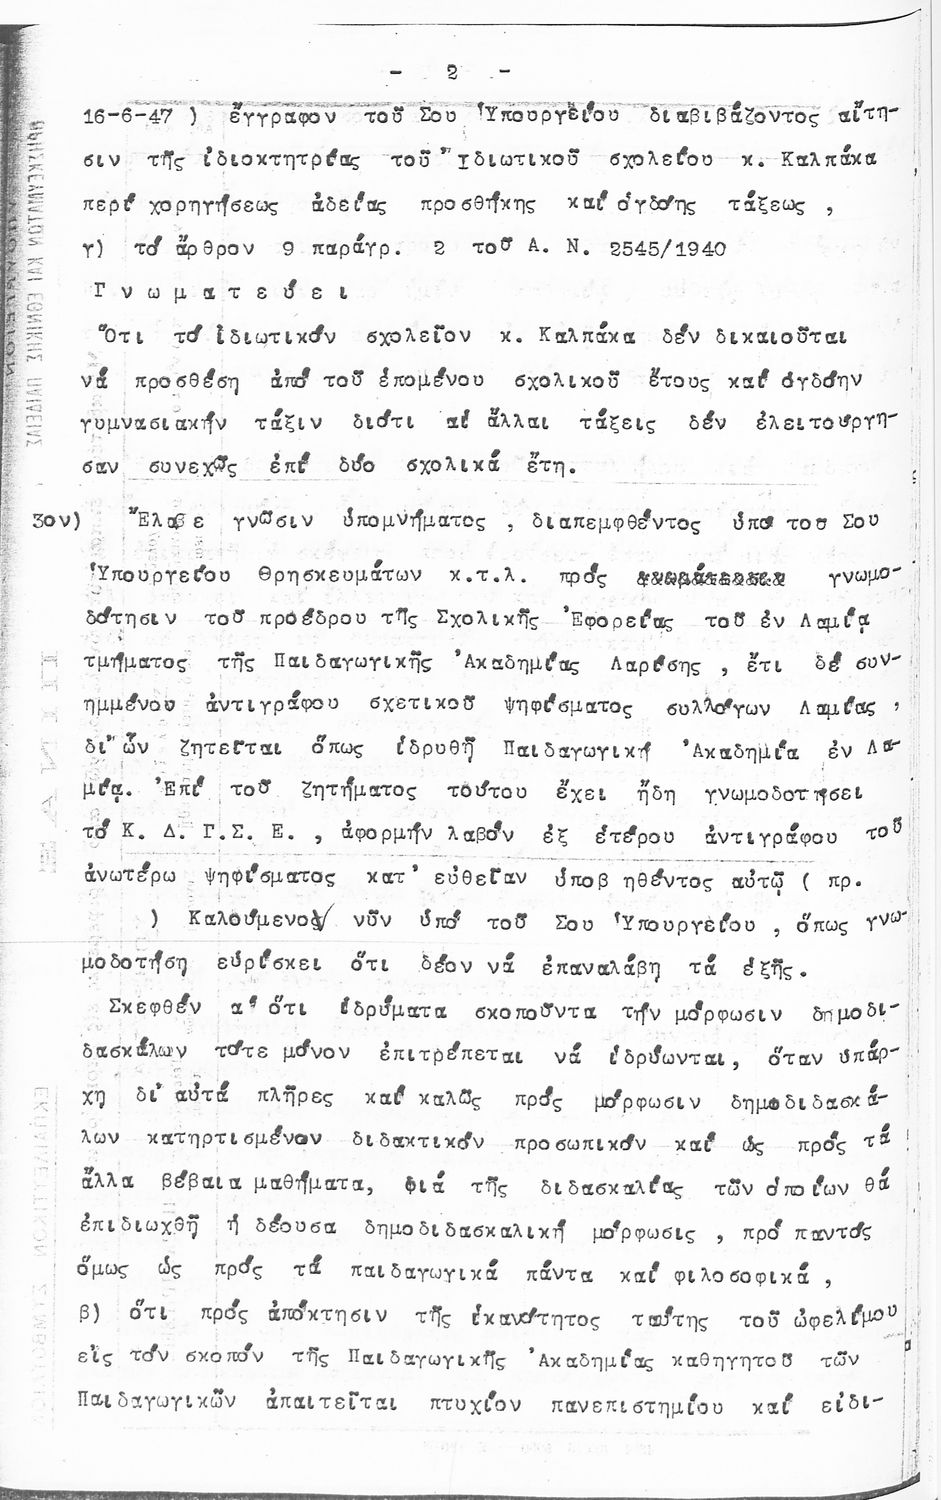 - 2 -
16-6-47 ) ἔγγραφον τοῦ Σου Ὑπουργείου διαβιβάζοντος αἴτη-
σιν τῆς ἰδιοκτητρίας τοῦ Ἰδιωτικοῦ σχολείου κ. Καλπάκα
περί χορηγήσεως ἀδείας προσθήκης καί ὀγδόης τάξεως ,
γ) τό ἄρθρον 9 παράγρ. 2 τοῦ Α. Ν. 2545/1940
Γ ν ω μ α τ ε ύ ε ι
Ὅτι τό ἰδιωτικόν σχολεῖον κ. Καλπάκα δέν δικαιοῦται
νά προσθέση ἀπό τοῦ ἑπομένου σχολικοῦ ἔτους καί ὀγδόην
γυμνασιακήν τάξιν διότι αἱ ἄλλαι τάξεις δέν ἐλειτούργη-
σαν συνεχῶς ἐπί δύο σχολικά ἔτη.
3ον) Ἔλαβε γνῶσιν ὑπομνήματος , διαπεμφθέντος ὑπό του Σου
Ὑπουργείου Θρησκευμάτων κ.τ.λ. πρός γνωμο-
δότησιν τοῦ προέδρου τῆς Σχολικῆς Ἐφορείας τοῦ ἐν Λαμίᾳ
τμήματος τῆς Παιδαγωγικῆς Ἀκαδημίας Λαρίσης , ἔτι δέ συν-
ημμένου ἀντιγράφου σχετικοῦ ψηφίσματος συλλόγων Λαμίας ,
δι' ὧν ζητεῖται ὅπως ἱδρυθῇ Παιδαγωγική Ἀκαδημία ἐν Λα-
μίᾳ. Ἐπί τοῦ ζητήματος τούτου ἔχει ἤδη γνωμοδοτήσει
τό Κ. Δ. Γ.Σ. Ε. , ἀφορμήν λαβόν ἐξ ἑτέρου ἀντιγράφου τοῦ
ἀνωτέρω ψηφίσματος κατ' εὐθεῖαν ὑποβ ηθέντος αὐτῷ ( πρ.
) Καλούμενον νῦν ὑπό τοῦ Σου Ὑπουργείου , ὅπως γνω-
μοδοτήση εὑρίσκει ὅτι δέον νά ἐπαναλάβη τά ἑξῆς.
Σκεφθέν α' ὅτι ἱδρύματα σκοποῦντα τήν μόρφωσιν δημοδι-
δασκάλων τότε μόνον ἐπιτρέπεται νά ἱδρύωνται, ὅταν ὑπάρ-
χη δι' αὐτά πλῆρες καί καλῶς πρός μόρφωσιν δημοδιδασκά-
λων κατηρτισμένον διδακτικόν προσωπικόν καί ὡς πρός τά
ἄλλα βέβαια μαθήματα, διά τῆς διδασκαλίας τῶν ὁποίων θά
ἐπιδιωχθῆ ἡ δέουσα δημοδιδασκαλική μόρφωσις , πρό παντός
ὅμως ὡς πρός τά παιδαγωγικά πάντα καί φιλοσοφικά ,
β) ὅτι πρός ἀπόκτησιν τῆς ἱκανότητος ταύτης τοῦ ὠφελίμου
εἰς τόν σκοπόν τῆς Παιδαγωγικῆς Ἀκαδημίας καθηγητοῦ τῶν
Παιδαγωγικῶν ἀπαιτεῖται πτυχίον πανεπιστημίου καί εἰδι-